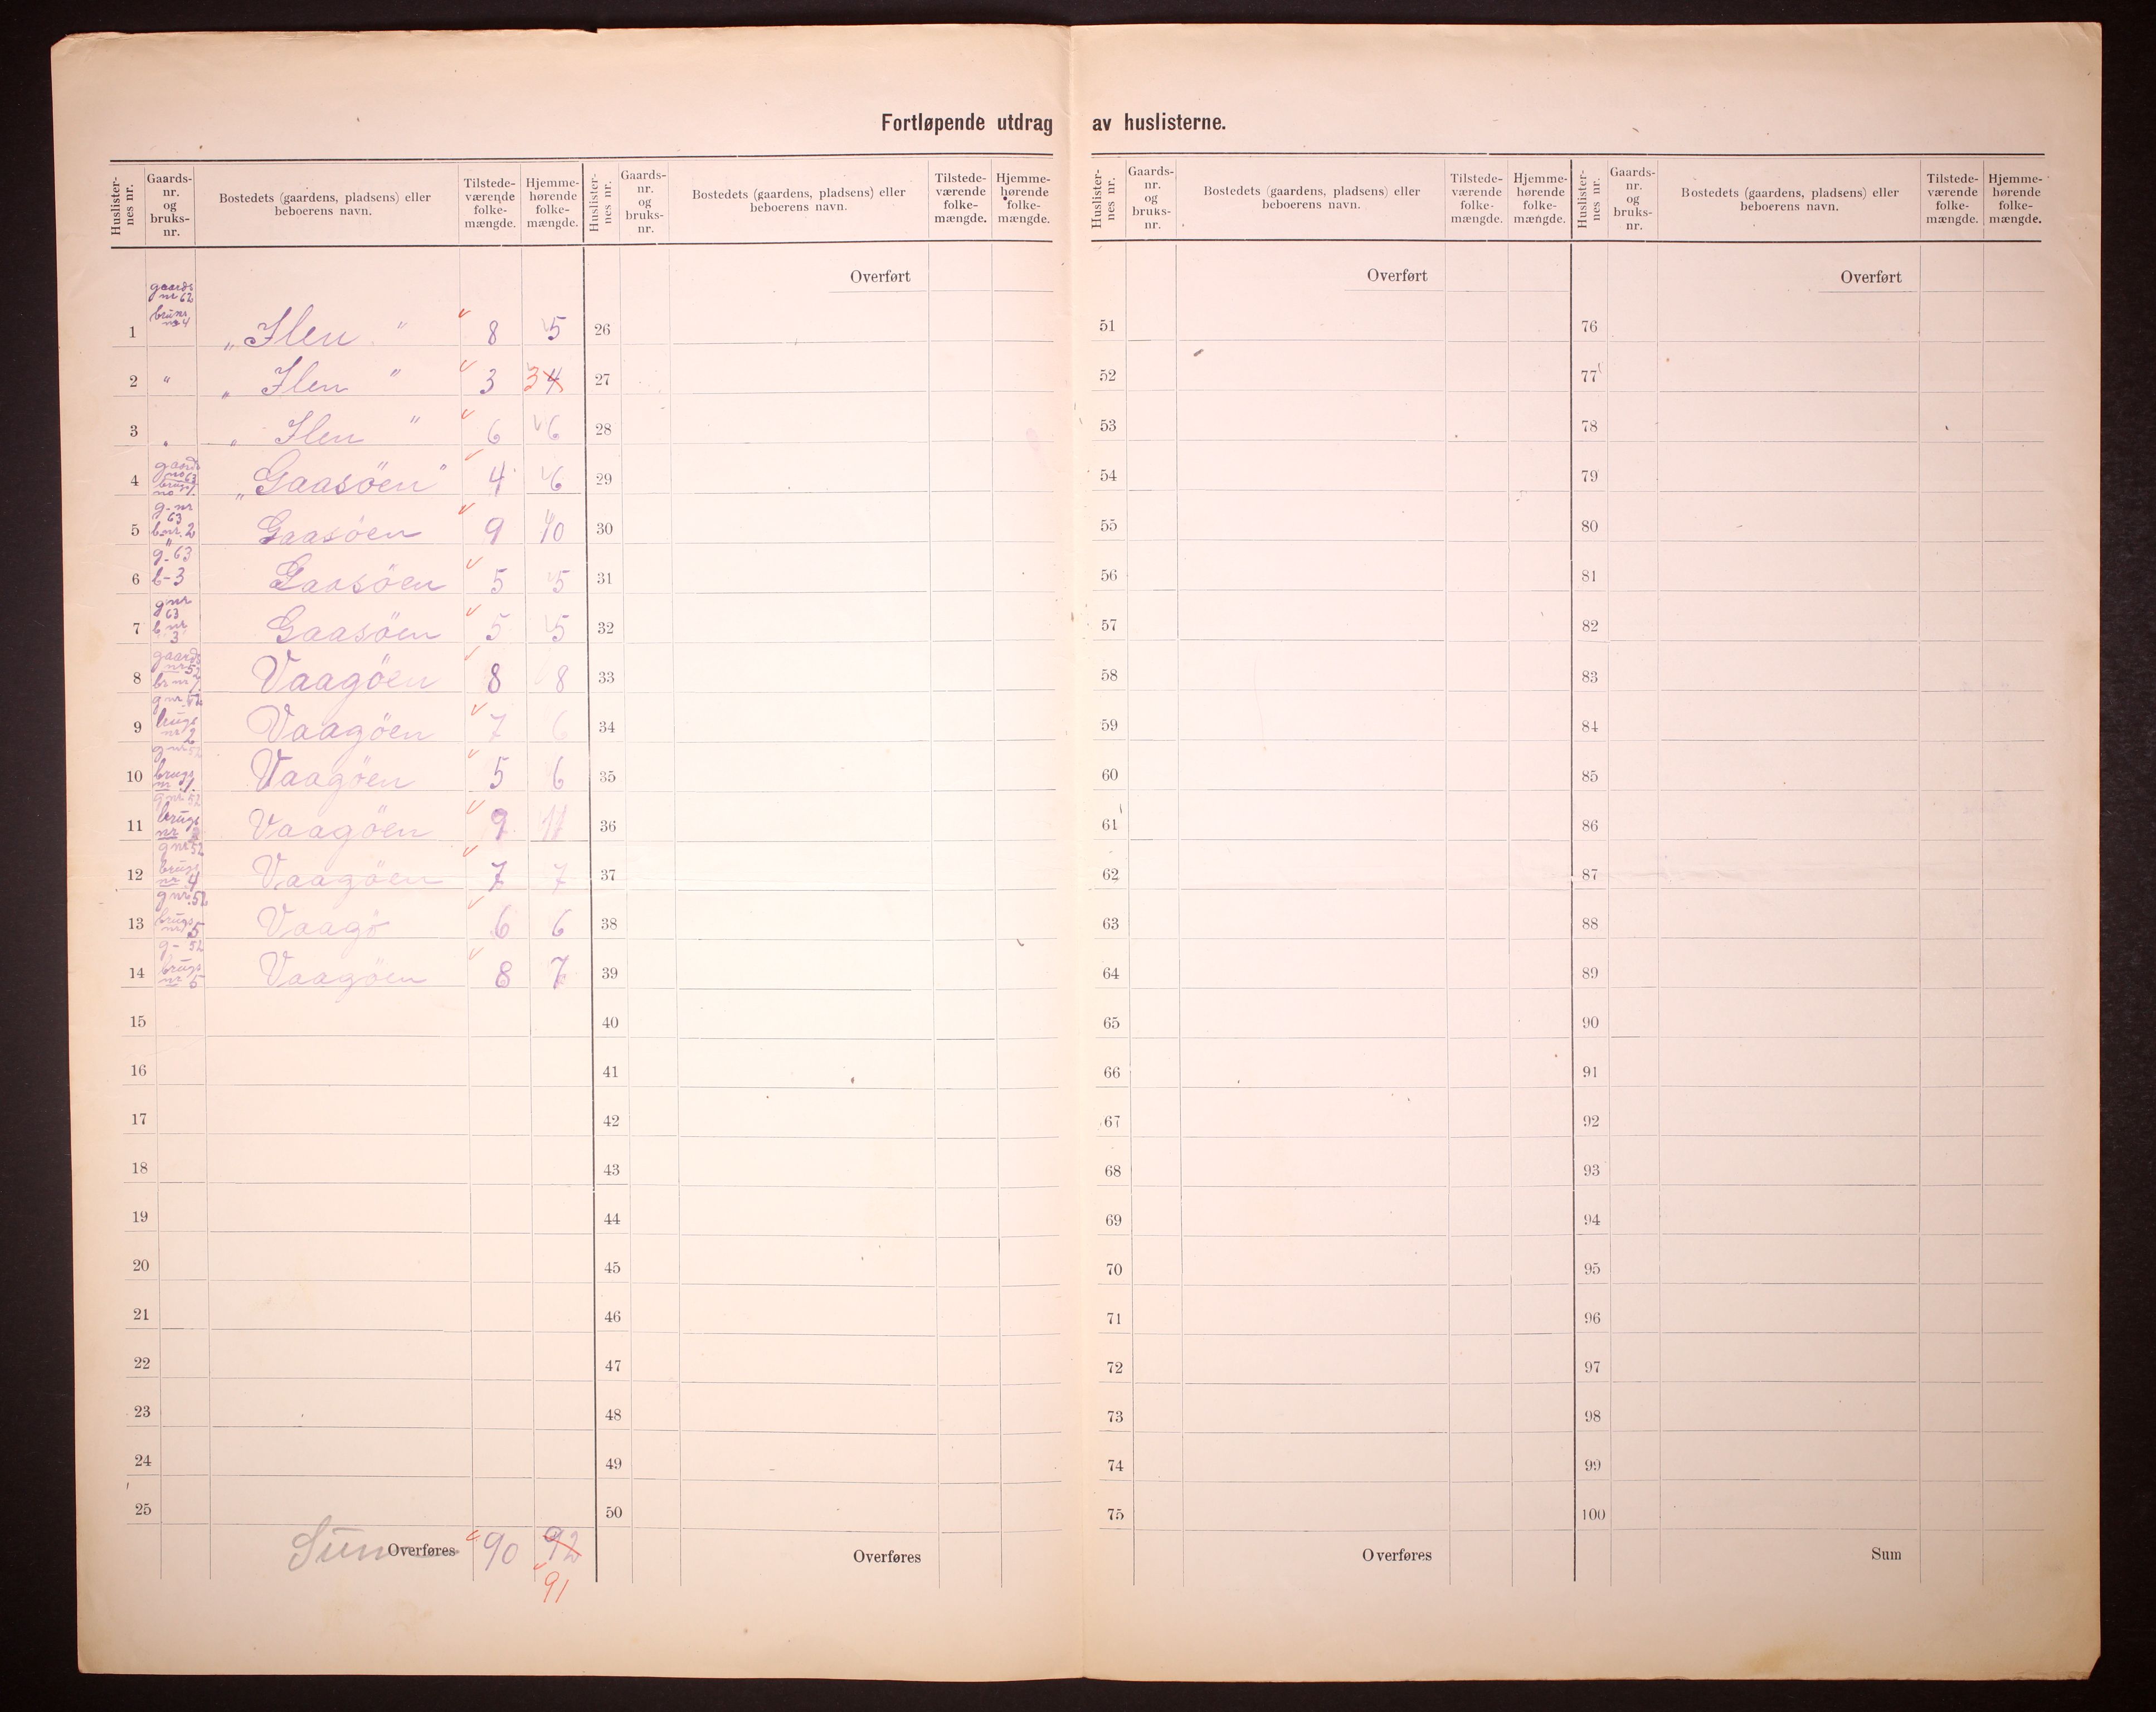 Fortløpende utdrag av huslisterne.
Huslister-nes nr. Gaards-nr. og bruks-nr. Bostedets (gaardens, pladsens) eller beboerens navn. Tilstede-værende folke-mængde. Hjemme-hørende folke-mængde.
Huslister-nes nr. Gaards-nr. og bruks-nr. Bostedets (gaardens, pladsens) eller beboerens navn. Tilstede-værende folke-mængde. Hjemme-hørende folke-mængde.
Huslister-nes nr. Gaards-nr. og bruks-nr. Bostedets (gaardens, pladsens) eller beboerens navn. Tilstede-værende folke-mængde. Hjemme-hørende folke-mængde.
Huslister-nes nr. Gaards-nr. og bruks-nr. Bostedets (gaardens, pladsens) eller beboerens navn. Tilstede-værende folke-mængde. Hjemme-hørende folke-mængde.
Overført Overført Overført
gaards nr 62
1 „Ilen" 8 5 26 51 76
2 " „Ilen" 3 3 4 27 52 77
3 „Ilen" 6 6 28 53 78
4 „Gaasöen" 4 6 29 54 79
5 g.nr 63 b.nr. 2 Gaasöen 9 10 30 55 80
6 g. 63 b-3 Gaasöen 5 5 31 56 81
7 g nr 63 b nr 3 Gaasöen 5 5 32 57 82
8 Vaagöen 8 8 33 58 83
9 g nr. 52 brugs nr 2 Vaagöen 7 6 34 59 84
10 g nr 52 brugs Vaagöen 5 6 35 60 85
11 g nr. 52 brugs nr Vaagöen 9 11 36 61 86
12 g nr 52 brugs nr 4 Vaagöen 7 7 37 62 87
13 g nr. 52 brugs nr 5 Vaagö 6 6 38 63 88
14 g- 52 brugs nr Vaagöen 8 7 39 64 89
15 40 65 90
16 41 66 91
17 42 67 92
18 43 68 93
19 44 69 94
20 45 70 95
21 46 71 96
22 47 72 97
23 48 73 98
24 49 74 99
25 50 75 100
Sum Overføres 90 92 Overføres Overføres Sum
91